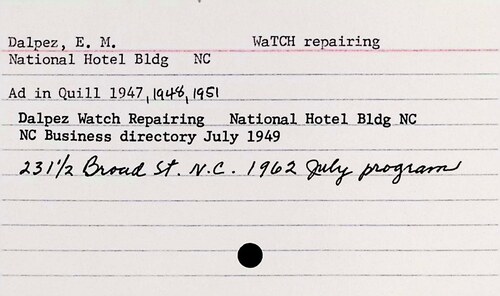 Dalpez, E. M. WaTCH repairing
National Hotel Bldg NC
Ad in Quill 1947, 1948, 1951
Dalpez Watch Repairing National Hotel Bldg NC
NC Business directory July 1949
231 1/2 Broad St. N.C. 1962 July program